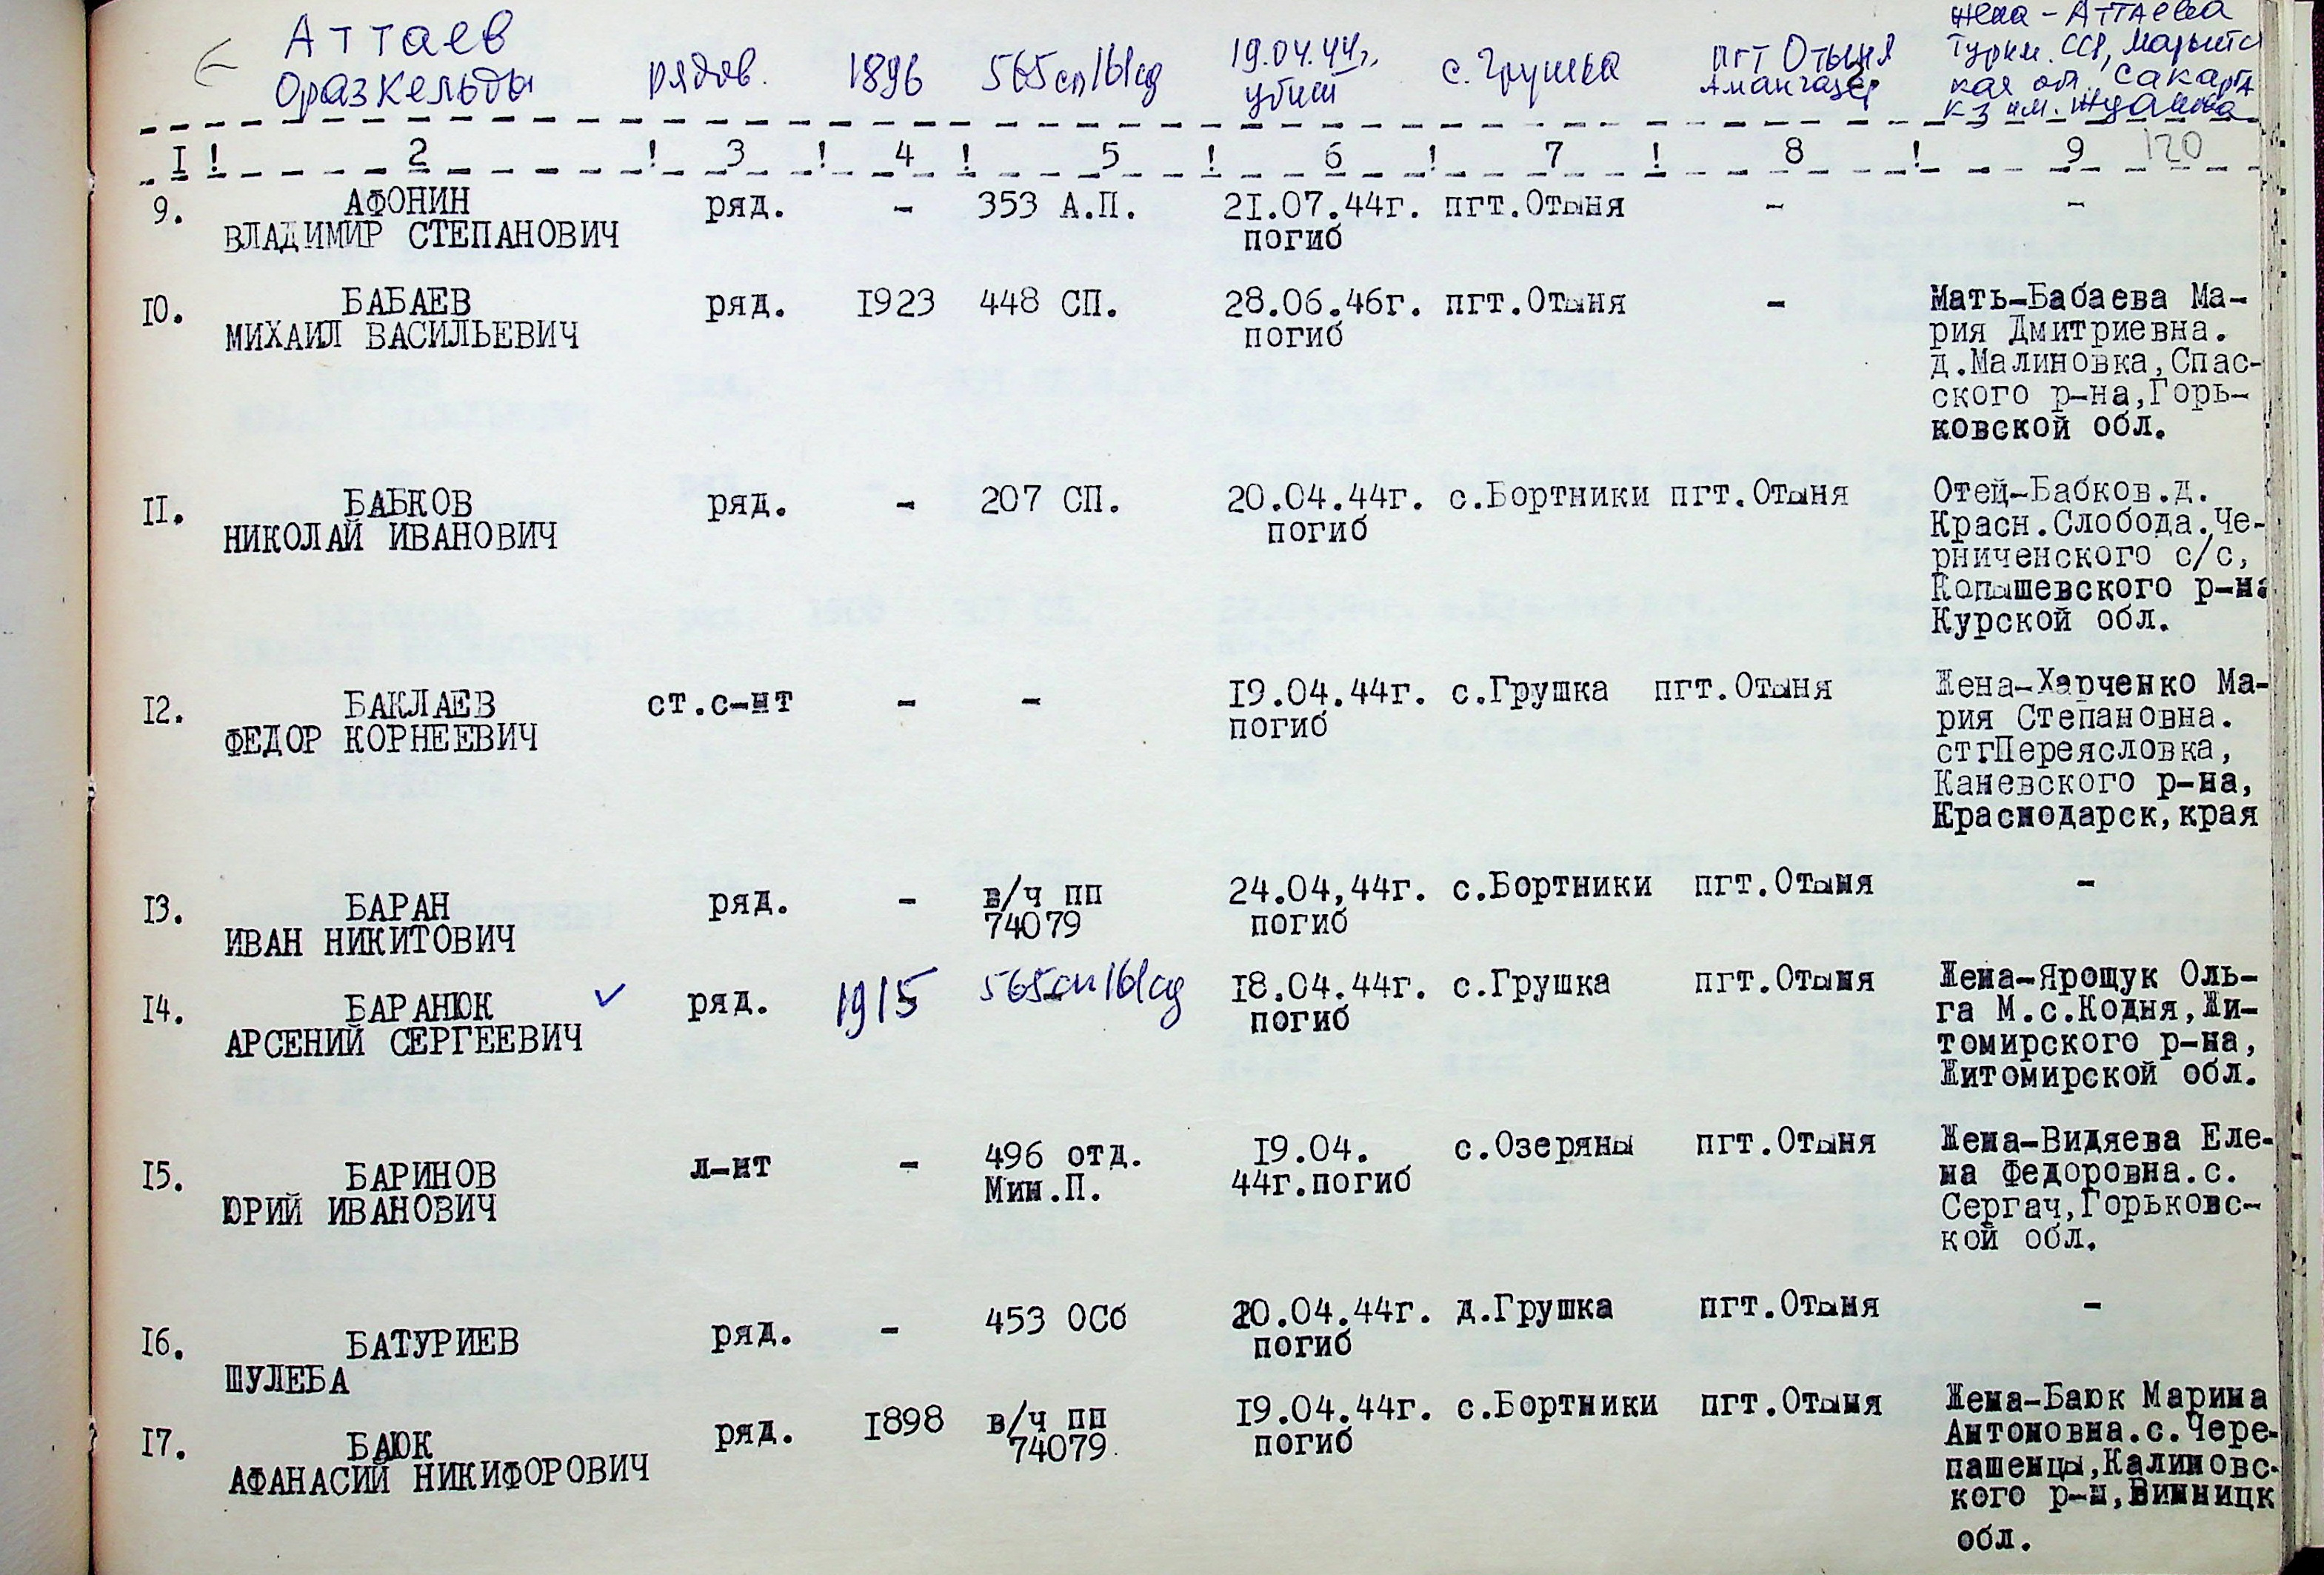 Аттаев
Оразкельды
рядов.
1896
565сп 161сд
19.04.44г.
убит
с. Грушка
пгт Отыня
жена - Аттаева
Туркм. ССР, Марыйс
кая об., Сакар
к-з им. Жданова
I ! 2 ! 3 ! 4 ! 5 ! 6 ! 7 ! 8 ! 9 120
9. АФОНИН ряд. - 353 А.П. 21.07.44г. пгт.Отыня - -
ВЛАДИМИР СТЕПАНОВИЧ погиб
10. БАБАЕВ ряд. 1923 448 СП. 28.06.46г. пгт.Отыня - Мать-Бабаева Ма-
МИХАИЛ ВАСИЛЬЕВИЧ погиб рия Дмитриевна.
д.Малиновка,Спас-
ского р-на,Горь-
ковской обл.
II. БАБКОВ ряд. - 207 СП. 20.04.44г. с.Бортники пгт.Отыня Отец-Бабков.д.
НИКОЛАЙ ИВАНОВИЧ погиб Красн.Слобода.Че-
рниченского с/с,
Копышевского р-на
Курской обл.
I2. БАКЛАЕВ ст.с-нт - - I9.04.44г. с.Грушка пгт.Отыня Жена-Харченко Ма-
ФЕДОР КОРНЕЕВИЧ погиб рия Степановна.
ст.Переясловка,
Каневского р-на,
Краснодарск,края
I3. БАРАН ряд. - в/ч пп 24.04,44г. с.Бортники пгт.Отыня -
ИВАН НИКИТОВИЧ 74079 погиб
I4. БАРАНЮК ✓ ряд. 1915 565сп 161сд I8.04.44г. с.Грушка пгт.Отыня Жена-Ярощук Оль-
АРСЕНИЙ СЕРГЕЕВИЧ погиб га М.с.Кодня,Жи-
томирского р-на,
Житомирской обл.
I5. БАРИНОВ л-нт - 496 отд. I9.04. с.Озеряны пгт.Отыня Жена-Видяева Еле-
ЮРИЙ ИВАНОВИЧ Мин.П. 44г.погиб на Федоровна.с.
Сергач,Горьковс-
кой обл.
I6. БАТУРИЕВ ряд. - 453 ОСб 20.04.44г. д.Грушка пгт.Отыня -
ШУЛЕБА погиб
I7. БАЮК ряд. I898 в/ч пп I9.04.44г. с.Бортники пгт.Отыня Жена-Баюк Марина
АФАНАСИЙ НИКИФОРОВИЧ 74079. погиб Антоновна.с.Чере-
пашенцы,Калиновс-
кого р-н,Винницк
обл.